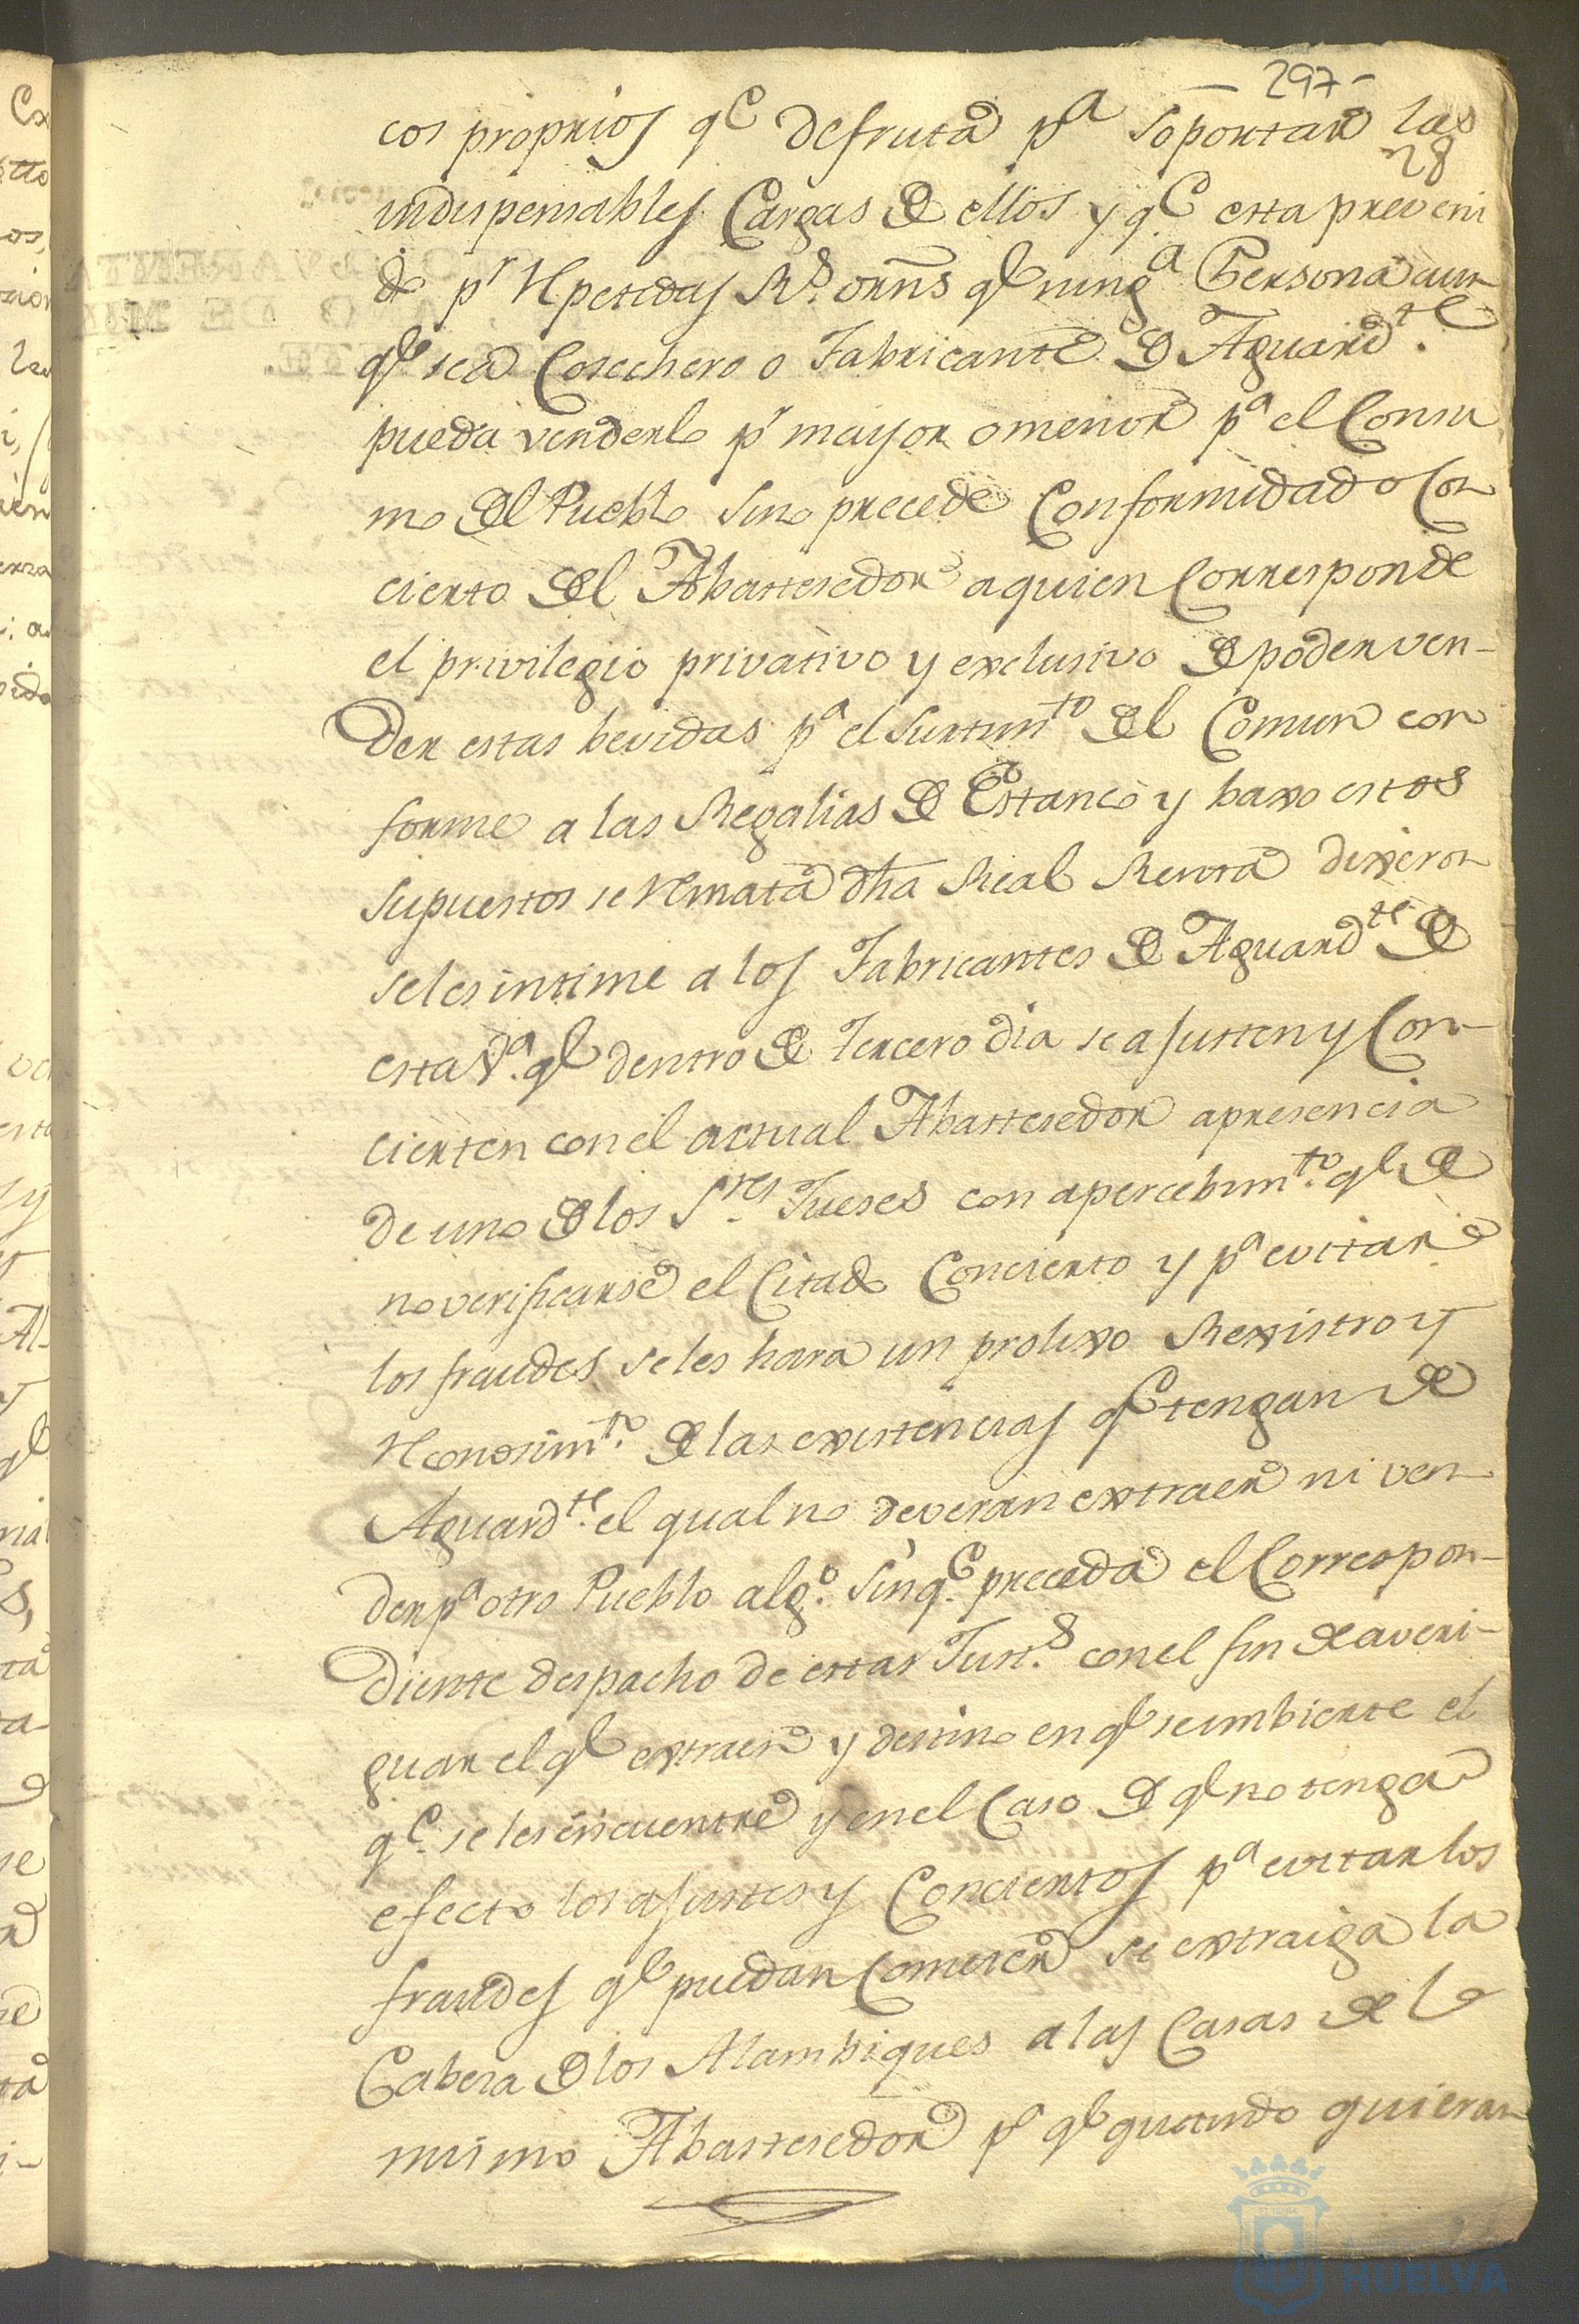 297-
cos proprios qe defruta pa soportar las
28
indispensables Cargas de ellos y qe esta preveni
do pr Repetidas Rs ornns qe ninga Persona aun
qe sea Cosechero o Fabricante de Aguardte
pueda venderlo pr mayor o menor pa el Consu
mo del Pueblo sino precede Conformidad o Con
cierto del Abastesedor a quien Corresponde
el privilegio privativo y exclusivo de poder ven-
der estas bevidas pa el surtimto del Comun con
forme a las Regalias de Estanco y baxo estos
supuestos se Remata dha Real Renta dixeron
seles intime a los Fabricantes de Aguardte de
esta Va. qe dentro de tercero dia se ajusten y Con-
cierten con el actual Abastesedor a presencia
de uno de los Sres Jueses con apercebimto. qe de
no verificarse el Citado Concierto y pa evitar
los fraudes seles hara un prolixo Rexistro y
Reconosimto. de las existencias qe tengan de
Aguardte. el qual no deveran extraer ni ven
der pa otro Pueblo algo. sin qe. preceda el Correspon-
diente despacho de estas Justs. con el fin de averi-
guar el qe extraen y destino en qe se imbierte el
qe. se les encuentre y en el Caso de qe no tenga
efecto los ajustes y Conciertos pa evitar los
fraudes qe puedan Comeser se extraiga la
Cabesa de los Alambiques a las Casas de el
mismo Abastesedor pa qe quando quieran
HUELVA